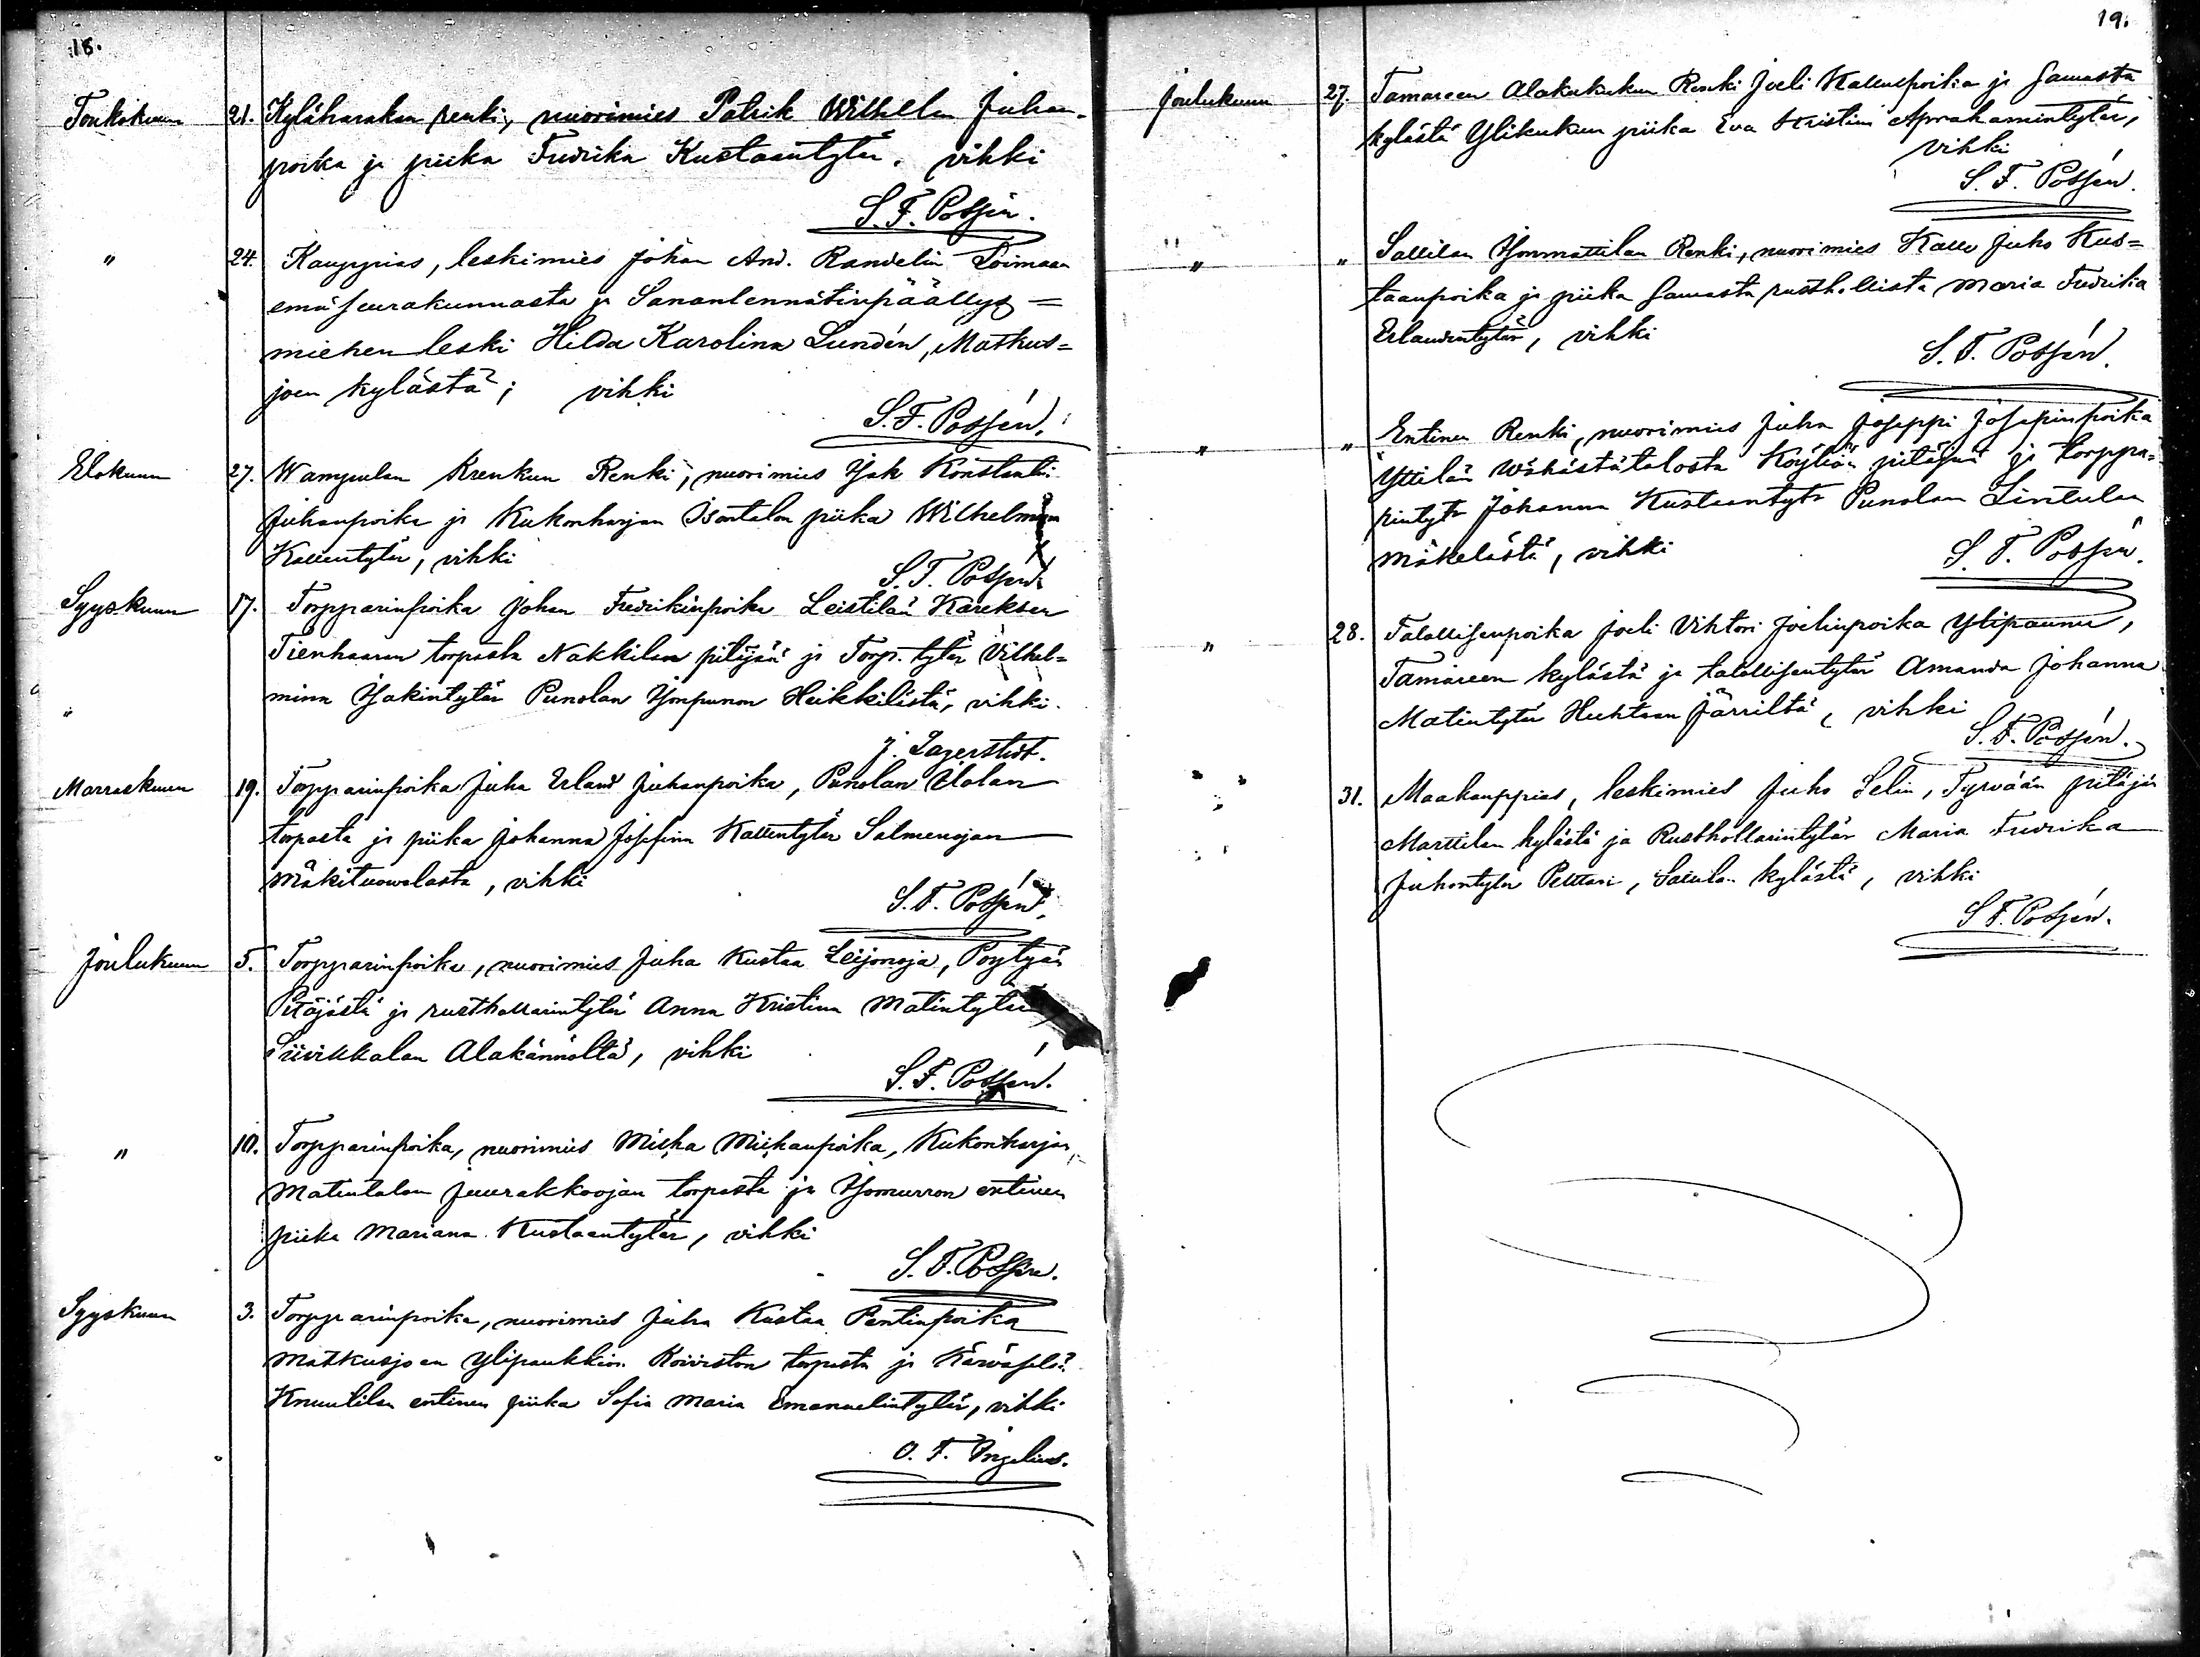 18.
Toukokuun 21. Kyläharakan renki, nuorimies Patrik Wilhelm Juhan-
poika ja piika Fredrika Kustaantytär. vihki
S. F. Possén.
" 24. Kauppias, leskimies Johan And. Randelin Loimaan
emäseurakunnasta ja Sananlennätinpäällys=
miehen leski Hilda Karolina Lundén, Matkus=
joen kylästä; vihki
S. F. Possén.
Elokuun 27. Wampulan Krenkun Renki, nuorimies Isak Konstanti
Juhanpoika ja Kukonharjan Isontalon piika Wilhelmina
Kallentytär, vihki
S. F. Possén
Syyskuun 17. Torpparinpoika Johan Fredrikinpoika Leistilän Kareksen
Tienhaaran torpasta Nakkilan pitäjää ja Torp. tytär Vilhel=
mina Isakintytär Punolan Isonpunon Heikkilästä, vihki.
J. Lagerstedt.
Marraskuun 19. Torpparinpoika Juha Erland Juhanpoika, Punolan Ulolan
torpasta ja piika Johanna Josefina Kallentytär Salmenojan
Mäkituwalasta, vihki
S. F. Possén.
Joulukuun 5. Torpparinpoika, nuorimies Juha Kustaa Leijonoja, Pöytyän
Pitäjästä ja rusthollarintytär Anna Kristina Matintytär
Siivikkalan Alakännöltä, vihki
S. F. Possén.
" 10. Torpparinpoika, nuorimies Miska Miskanpoika, Kukonharjan
Matintalon Juurakkoojan torpasta ja Isomurron entinen
piika Mariana Kustaantytär, vihki
S. F. Possén.
Syyskuun 3. Torpparinpoika, nuorimies Juha Kustaa Pentinpoika
Matkusjoen Ylipaukkion Koiviston torpasta ja Kärväselä
Knuutilan entinen piika Sofia Maria Emanuelintytär, vihki
O. F. Ingelius.
19.
Joulukuun 27. Tamareen Alakukukun Renki Joeli Kallenpoika ja samasta
kylästä Ylikukun piika Eva Kristiina Aprahamintytär,
vihki
S. F. Possén.
" " Sallilan Isonmattilan Renki, nuorimies Kalle Juho Kus=
taanpoika ja piika samasta rusthollista Maria Fredrika
Erlandintytär, vihki
S. F. Possén.
" " Entinen Renki, nuorimies Juha Joseppi Josepinpoika
Yttilän Wähästätalosta Köyliön pitäjää ja torppa=
rintytr Johanna Kustaantytr Punolan Lintulan
Mäkelästä, vihki
S. F. Possén.
" 28. Talollisenpoika Joeli Vihtori Joelinpoika Ylipaunu,
Tamareen kylästä ja talollisentytär Amanda Johanna
Matintytär Huhtaan Järriltä, vihki
S. F. Possén.
31. Maakauppias, leskimies Juho Selin, Tyrvään pitäjän
Marttilan kylästä ja Rusthollarintytär Maria Fredrika
Juhontytär Pelttari, kylästä, vihki
S. F. Possén.